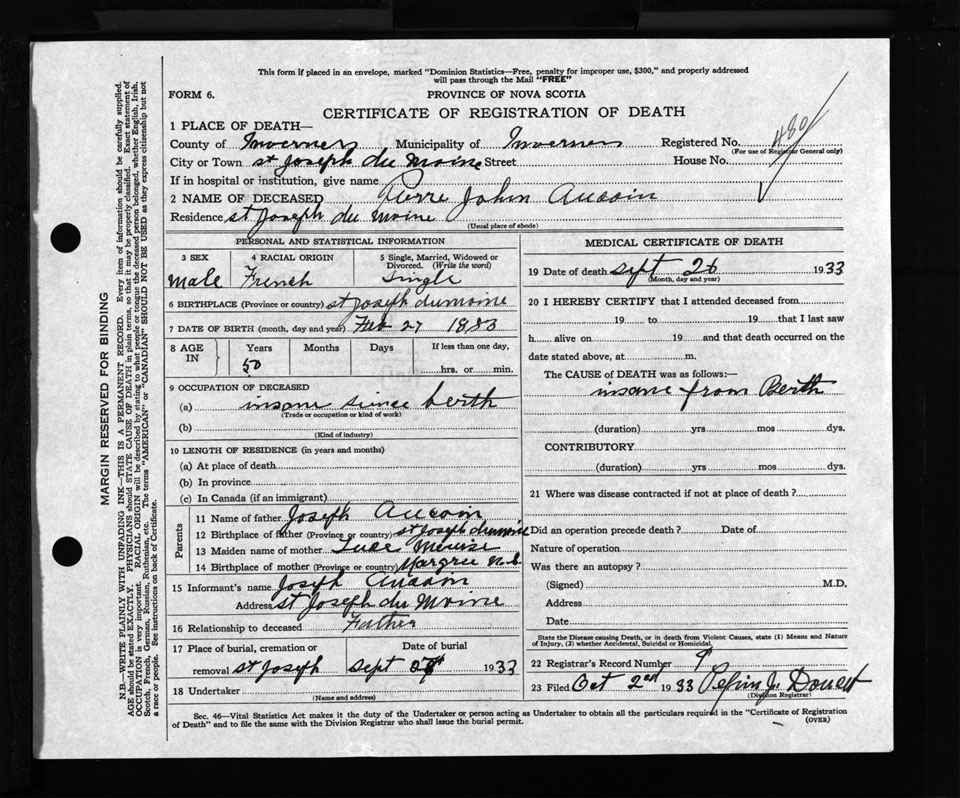 This form if placed in an envelope, marked "Dominion Statistics—Free, penalty for improper use, $300," and properly addressed
will pass through the Mail "FREE"
FORM 6. PROVINCE OF NOVA SCOTIA
CERTIFICATE OF REGISTRATION OF DEATH
1 PLACE OF DEATH—
County of Inverness Municipality of Inverness Registered No. 480
(For use of Registrar General only)
City or Town st Joseph du Moine Street House No.
If in hospital or institution, give name
2 NAME OF DECEASED Pierre John Aucoin
Residence st Joseph du Moine
(Usual place of abode)
PERSONAL AND STATISTICAL INFORMATION
3 SEX 4 RACIAL ORIGIN 5 Single, Married, Widowed or
Divorced. (Write the word)
male French Single
6 BIRTHPLACE (Province or country) st Joseph dumoine
7 DATE OF BIRTH (month, day and year) Feb 27 1883
8 AGE IN Years Months Days If less than one day,
50 hrs. or min.
9 OCCUPATION OF DECEASED
(a) insane sence berth
(Trade or occupation or kind of work)
(b)
(Kind of industry)
10 LENGTH OF RESIDENCE (in years and months)
(a) At place of death
(b) In province
(c) In Canada (if an immigrant)
Parents
11 Name of father Joseph Aucoin
12 Birthplace of father (Province or country) st Joseph dumoine
13 Maiden name of mother
14 Birthplace of mother (Province or country) Margree N.S.
15 Informant's name Joseph Aucoin
Address st Joseph du Moine
16 Relationship to deceased Father
17 Place of burial, cremation or Date of burial
removal st Joseph Sept 1933
18 Undertaker
(Name and address)
MEDICAL CERTIFICATE OF DEATH
19 Date of death sept 26 1933
(Month, day and year)
20 I HEREBY CERTIFY that I attended deceased from
19 to 19 that I last saw
h alive on 19 and that death occurred on the
date stated above, at m.
The CAUSE of DEATH was as follows:—
insane from Berth
(duration) yrs mos dys.
CONTRIBUTORY
(duration) yrs mos dys.
21 Where was disease contracted if not at place of death?
Did an operation precede death? Date of
Nature of operation
Was there an autopsy?
(Signed) M.D.
Address
Date
State the Disease causing Death, or in death from Violent Causes, state (1) Means and Nature
of Injury, (2) whether Accidental, Suicidal or Homicidal.
22 Registrar's Record Number 9
23 Filed Oct 2nd 1933 J. Doucet
(Division Registrar)
Sec. 46—Vital Statistics Act makes it the duty of the Undertaker or person acting as Undertaker to obtain all the particulars required in the "Certificate of Registration
of Death" and to file the same with the Division Registrar who shall issue the burial permit. (OVER)
MARGIN RESERVED FOR BINDING
N.B.—WRITE PLAINLY WITH UNFADING INK—THIS IS A PERMANENT RECORD. Every item of information should be carefully supplied.
AGE should be stated EXACTLY. PHYSICIANS should STATE CAUSE OF DEATH in plain terms, so that it may be properly classified. Exact statement of
OCCUPATION is very important. RACIAL ORIGIN will be described by stating to what people or tongue the deceased person belonged, whether English, Irish,
Scotch, French, German, Russian, Ruthenian, etc. The terms "AMERICAN" or "CANADIAN" SHOULD NOT BE USED as they express citizenship but not
a race or people. See instructions on back of Certificate.